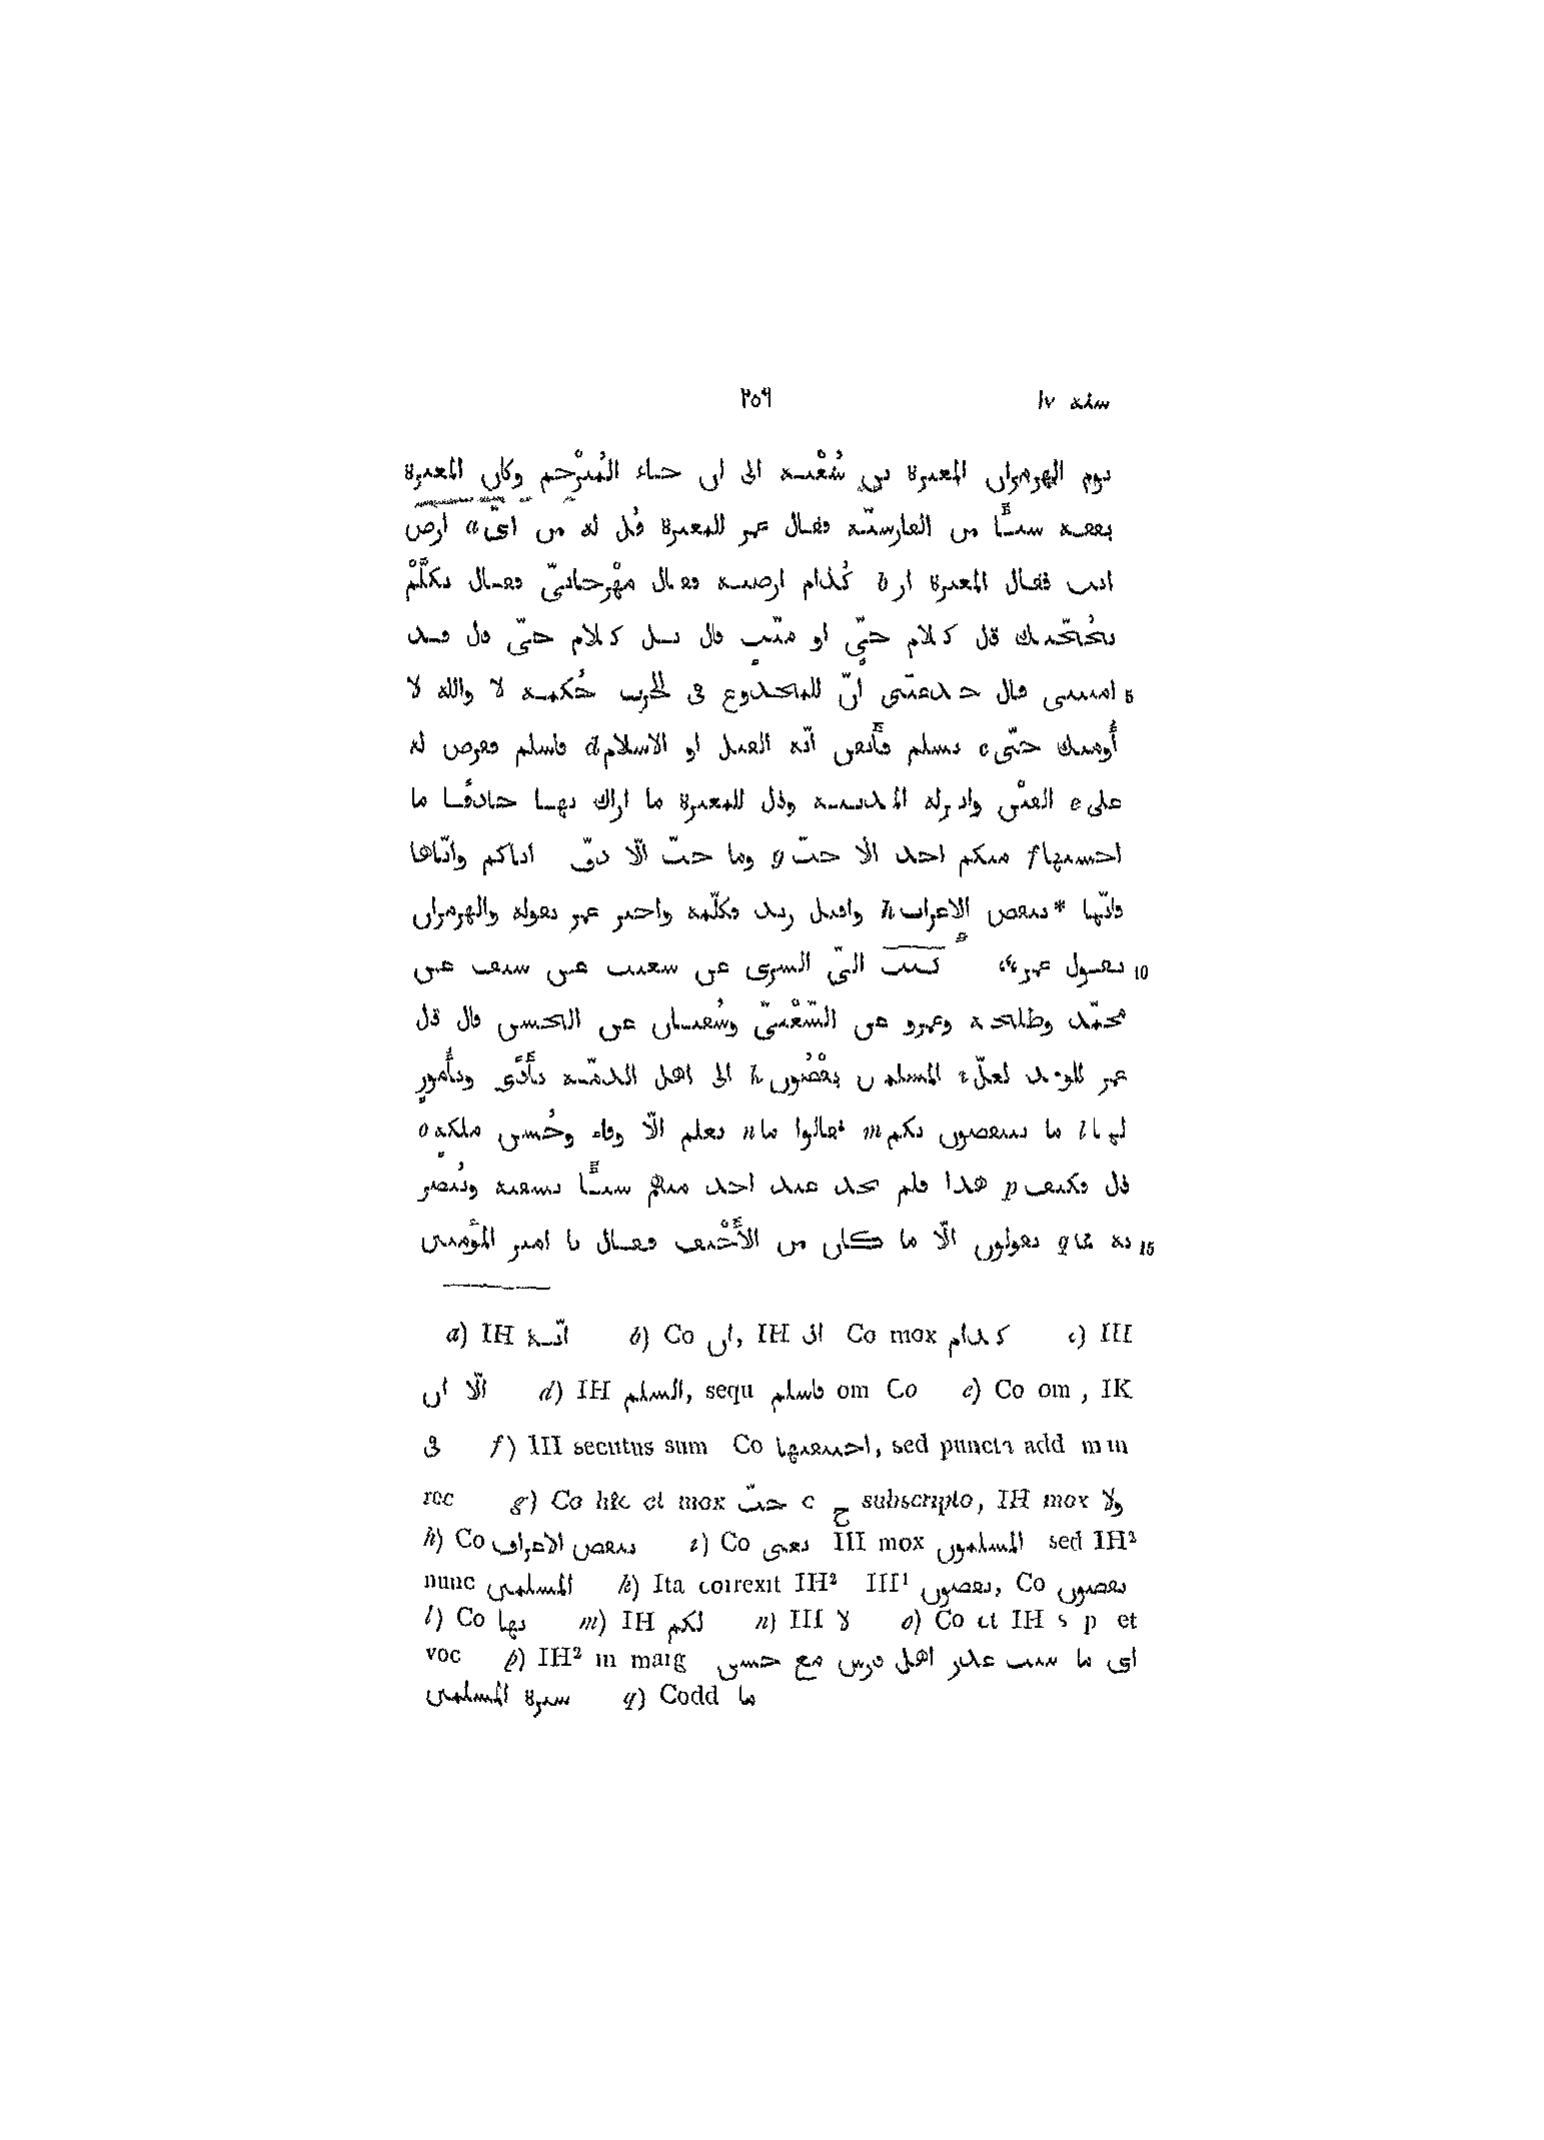 سنة ١٧ ٢٥٥٩
يوم الهرمزان المغيرة بن شُعْبة الى ان جاء المُتَرْجِم وكان المغيرة
يفقه شيئًا من الفارسيّة فقال عمر للمغيرة قُل له من اىّ a ارض
انت فقال المغيرة از b كُذام ارضيه فقال مِهْرجانىّ فقال تكلَّمْ
بحُجّتك قال كلام حىّ او ميّت قال بل كلام حىّ قال قد
5 امنتنى قال خدعتنى انّ للمخدوع فى الحرب حُكمه لا والله لا
أُومنك حتّى c تسلم فأيقن انّه القتل او الاسلام d فاسلم ففرض له
على e الفَيْن وانزله المدينة وقال للمغيرة ما اراك بها حاذقًا ما
احسنها f منكم احد الّا خبّ g وما خبّ الّا دقّ ايّاكم وايّاها
فانّها * تنقض الإعراب h واقبل زيد فكلّمه واخبر عمر بقوله والهرمزان
10 بقول عمر، كتب الىّ السرى عن شعيب عن سيف عن
محمّد وطلحة وعمرو عن الشّعْبىّ وسُفيان عن الحسن قال قال
عمر للوفد لعلّ i المسلمين يُفْضُون k الى اهل الذمّة بأَذًى وبأُمورٍ
لها l ما ينتقضون بكم m فقالوا ما n نعلم الّا وفاء وحُسن ملكةٍ o
قال فكيف p هذا فلم يجد عند احد منهم شيئًا يشفيه ويُبصر
15 به ممّا q يقولون الّا ما كان من الأَحْنف فقال يا امير المؤمنين
a) IH ايّة b) Co ان, IH اى Co mox كدام c) IH
الّا ان d) IH السلم, sequ فاسلم om Co e) Co om, IK
فى f) IH secutus sum Co, sed puncta add man
rec g) Co hic et mox حبّ c ح subscripto, IH mox ولا
h) Co بنقص الاعراف i) Co يعنى IH mox المسلمون sed IH²
nunc المسلمين k) Ita correxit IH² IH¹, Co يفضون
l) Co بها m) IH لكم n) IH لا o) Co et IH s p et
voc p) IH² in marg اى ما سبب غدر اهل فرس مع حسن
سيرة المسلمين q) Codd ما